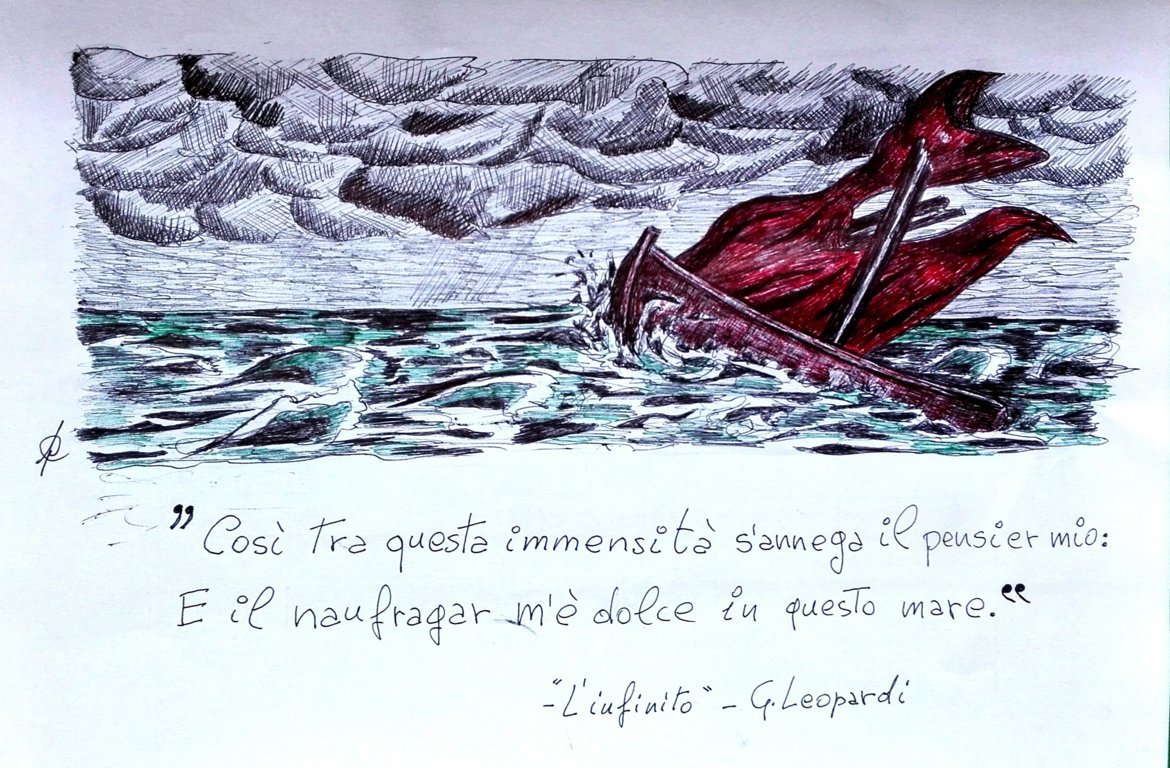 "Così tra questa immensità s'annega il pensier mio:
E il naufragar m'è dolce in questo mare."
-"L'infinito" - G. Leopardi